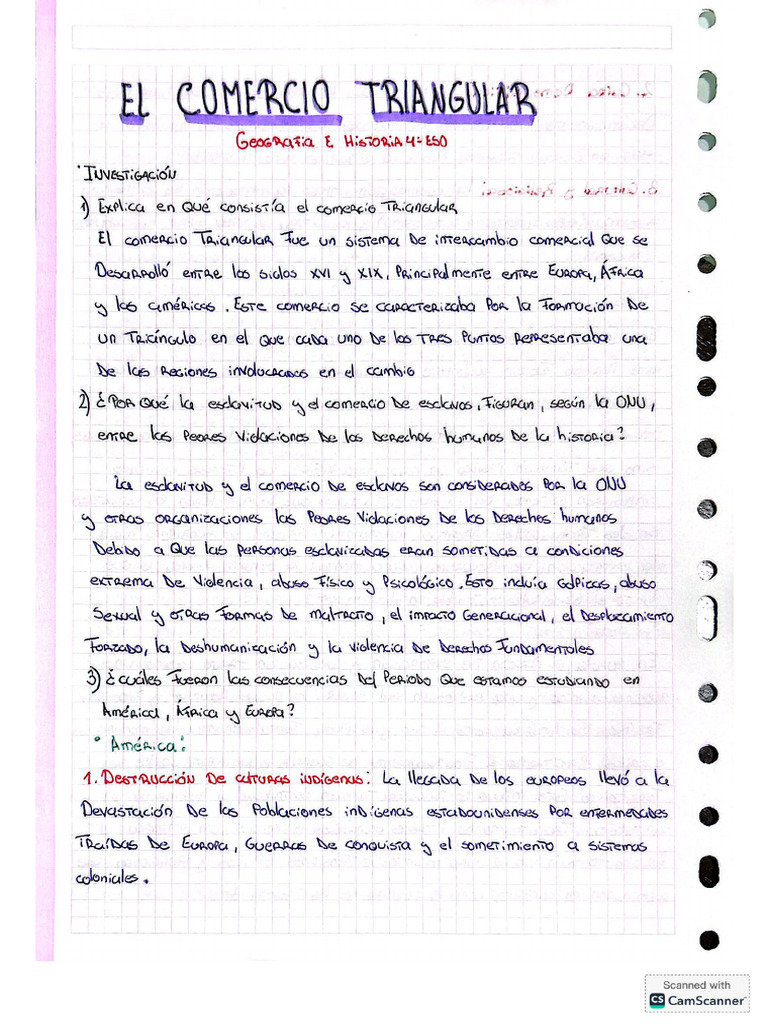 EL COMERCIO TRIANGULAR
GEOGRAFIA E HISTORIA 4º ESO
· INVESTIGACIÓN
1) Explica en qué consistía el comercio triangular
El comercio triangular fue un sistema de intercambio comercial que se
desarrolló entre los siglos XVI y XIX, principalmente entre Europa, África
y las américas. Este comercio se caracterizaba por la formación de
un triángulo en el que cada uno de los tres puntos representaba una
de las regiones involucradas en el cambio
2) ¿Por qué la esclavitud y el comercio de esclavos, figuran, según la ONU,
entre las peores violaciones de los derechos humanos de la historia?
La esclavitud y el comercio de esclavos son considerados por la ONU
y otras organizaciones las peores violaciones de los derechos humanos
debido a que las personas esclavizadas eran sometidas a condiciones
extrema de violencia, abuso físico y psicológico. Esto incluía golpizas, abuso
sexual y otras formas de maltrato, el impacto generacional, el desplazamiento
forzado, la deshumanización y la violencia de derechos fundamentales
3) ¿Cuáles fueron las consecuencias del periodo que estamos estudiando en
América, África y Europa?
· América:
1. Destrucción de culturas indígenas: La llegada de los europeos llevó a la
devastación de las poblaciones indígenas estadounidenses por enfermedades
traídas de Europa, guerras de conquista y el sometimiento a sistemas
coloniales.
Scanned with
CS CamScanner